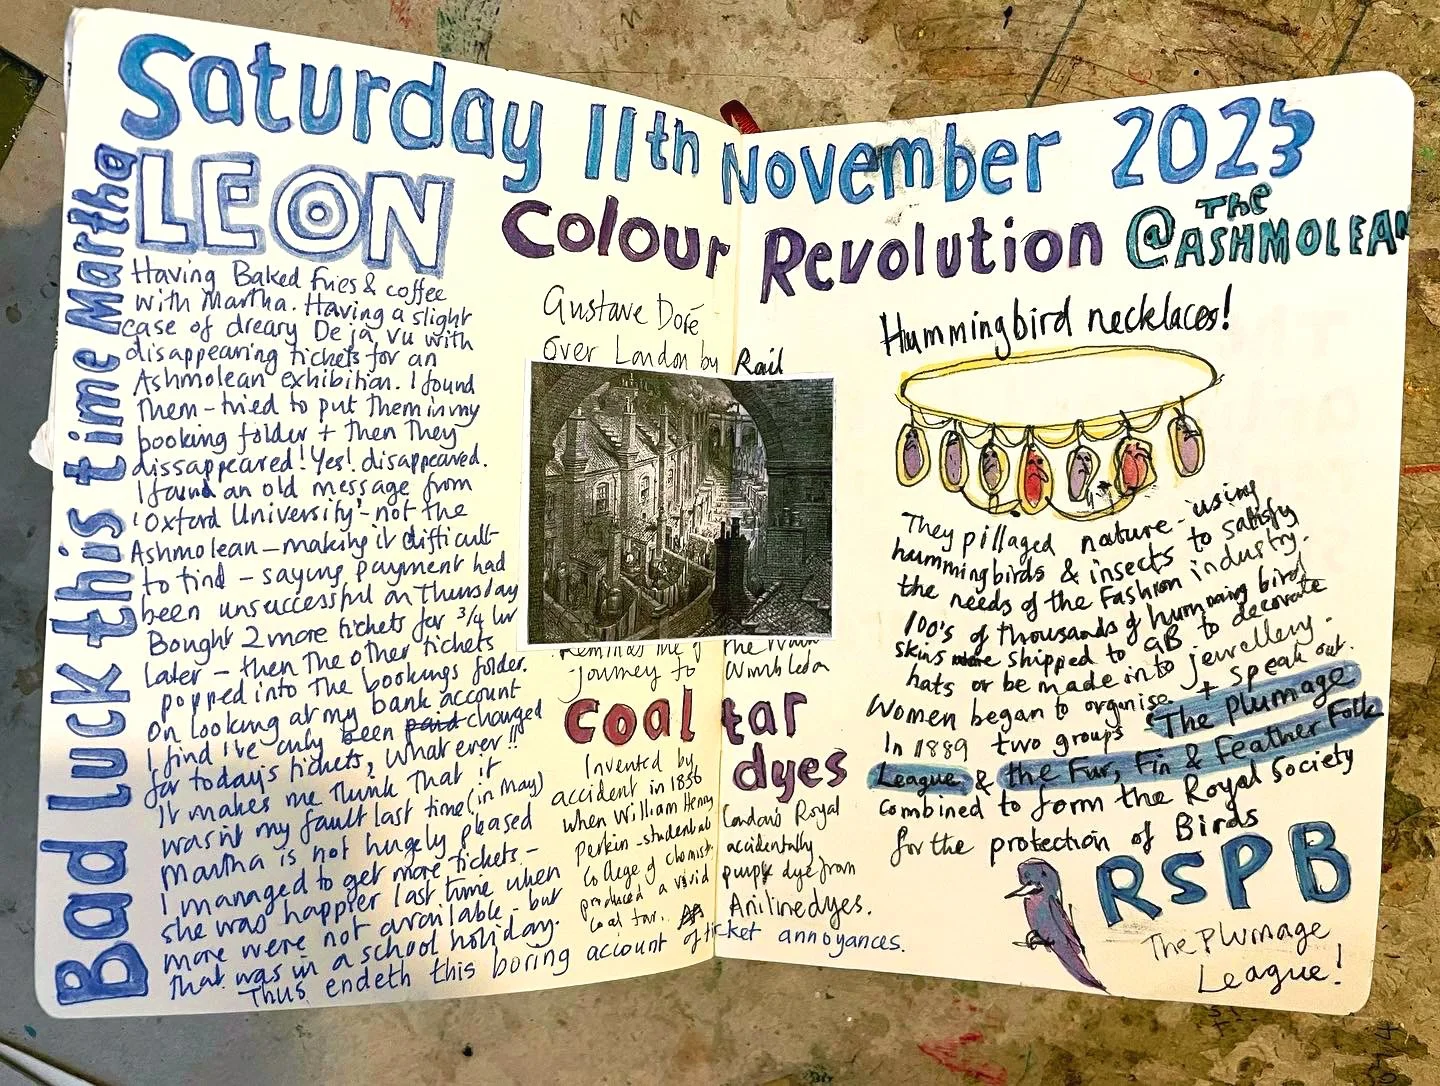 Saturday 11th November 2023
Bad Luck this time Martha
LEON
Having Baked fries & coffee
with Martha. Having a slight
case of dreary De ja, vu with
disappearing tickets for an
Ashmolean exhibition. I found
Them - tried to put them in my
booking folder + then They
dissappeared! Yes! disappeared.
I found an old message from
'Oxford University' - not the
Ashmolean - making it difficult
to find - saying payment had
been unsuccessful on Thursday
Bought 2 more tickets for 3/4 hr
Later - then the other tickets
popped into The bookings folder.
On looking at my bank account
I find I've only been paid changed
for today's tickets, whatever!!
It makes me think That it
wasn't my fault last time (in May)
Martha is not hugely pleased
I managed to get more tickets -
she was happier last time when
more were not available - but
That was in a school holiday.
Thus endeth this boring account of ticket annoyances.
Colour Revolution @ The
ASHMOLEAN
Gustave Doré
Over London by Rail
Reminds me of the Train
journey to Wimbledon
coal tar
dyes
Invented by
accident in 1856
when William Henry
Perkin - student at London's Royal
College of chemistry accidentally
produced a vivid purple dye from
Coal tar. Aniline dyes.
Hummingbird necklaces!
They pillaged nature - using
hummingbirds & insects to satisfy
the needs of the fashion industry.
100's of thousands of humming bird
skins were shipped to GB to decorate
hats or be made into jewellery.
Women began to organise + speak out.
In 1889 two groups - The Plumage
League & the Fur, Fin & Feather Folk
combined to form the Royal Society
for the protection of Birds
RSPB
The Plumage
League!